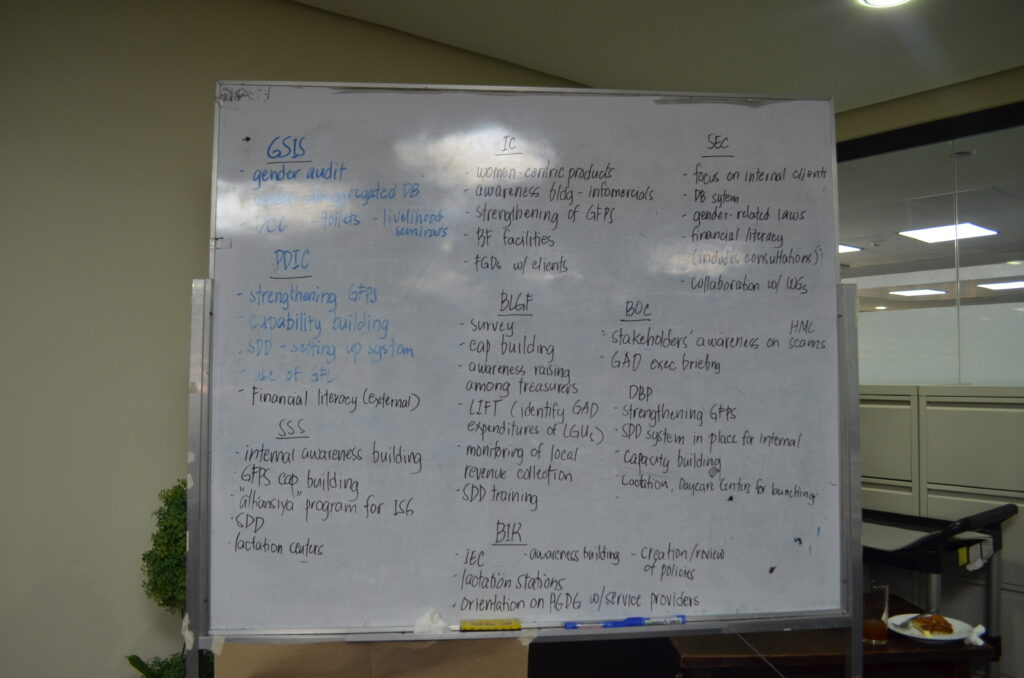 GSIS
- gender audit
- gender-disaggregated DB
- toilets - livelihood
seminars
PDIC
- strengthening GFPS
- capability building
- SDD - setting up system
- use of GFL
- Financial literacy (external)
SSS
- internal awareness building
- GFPS cap building
- "alkansiya" program for ISG
- SDD
- lactation centers
IC
- women-centric products
- awareness bldg - infomercials
- strengthening of GFPS
- BF facilities
- FGDs w/ clients
BLGF
- survey
- cap building
- awareness raising
among treasurers
- LIFT (identify GAD
expenditures of LGUs)
- monitoring of local
revenue collection
- SDD training
BIR
- IEC - awareness building - creation/review
of policies
- lactation stations
- orientation on AGDG w/service providers
SEC
- focus on internal clients
- DB sytem
- gender-related laws
- financial literacy
(includes consultations)
- collaboration w/ WGs
BOC
- stakeholders' awareness on HML scams
- GAD exec briefing
DBP
- strengthening GFPS
- SDD system in place for internal
- Capacity building
- Lactation, Daycare Centers for launching